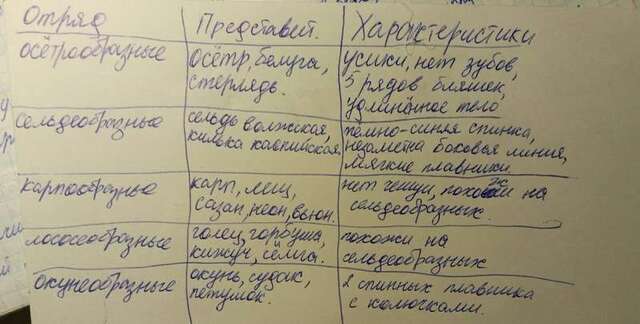 Отряд Представит. Характеристики
осётрообразные осётр, белуга, стерлядь. усики, нет зубов, 5 рядов бляшек, удлинённое тело
сельдеобразные сельдь волжская, килька каспийская тёмно-синяя спинка, незаметна боковая линия, мягкие плавники.
карпообразные карп, лещ, сазан, неон, вьюн. нет чешуи, похожи на сельдеобразных.
лососеобразные голец, горбуша, кижуч, сёмга. похожи на сельдеобразных
окунеобразные окунь, судак, петушок. 2 спинных плавника с колючками.